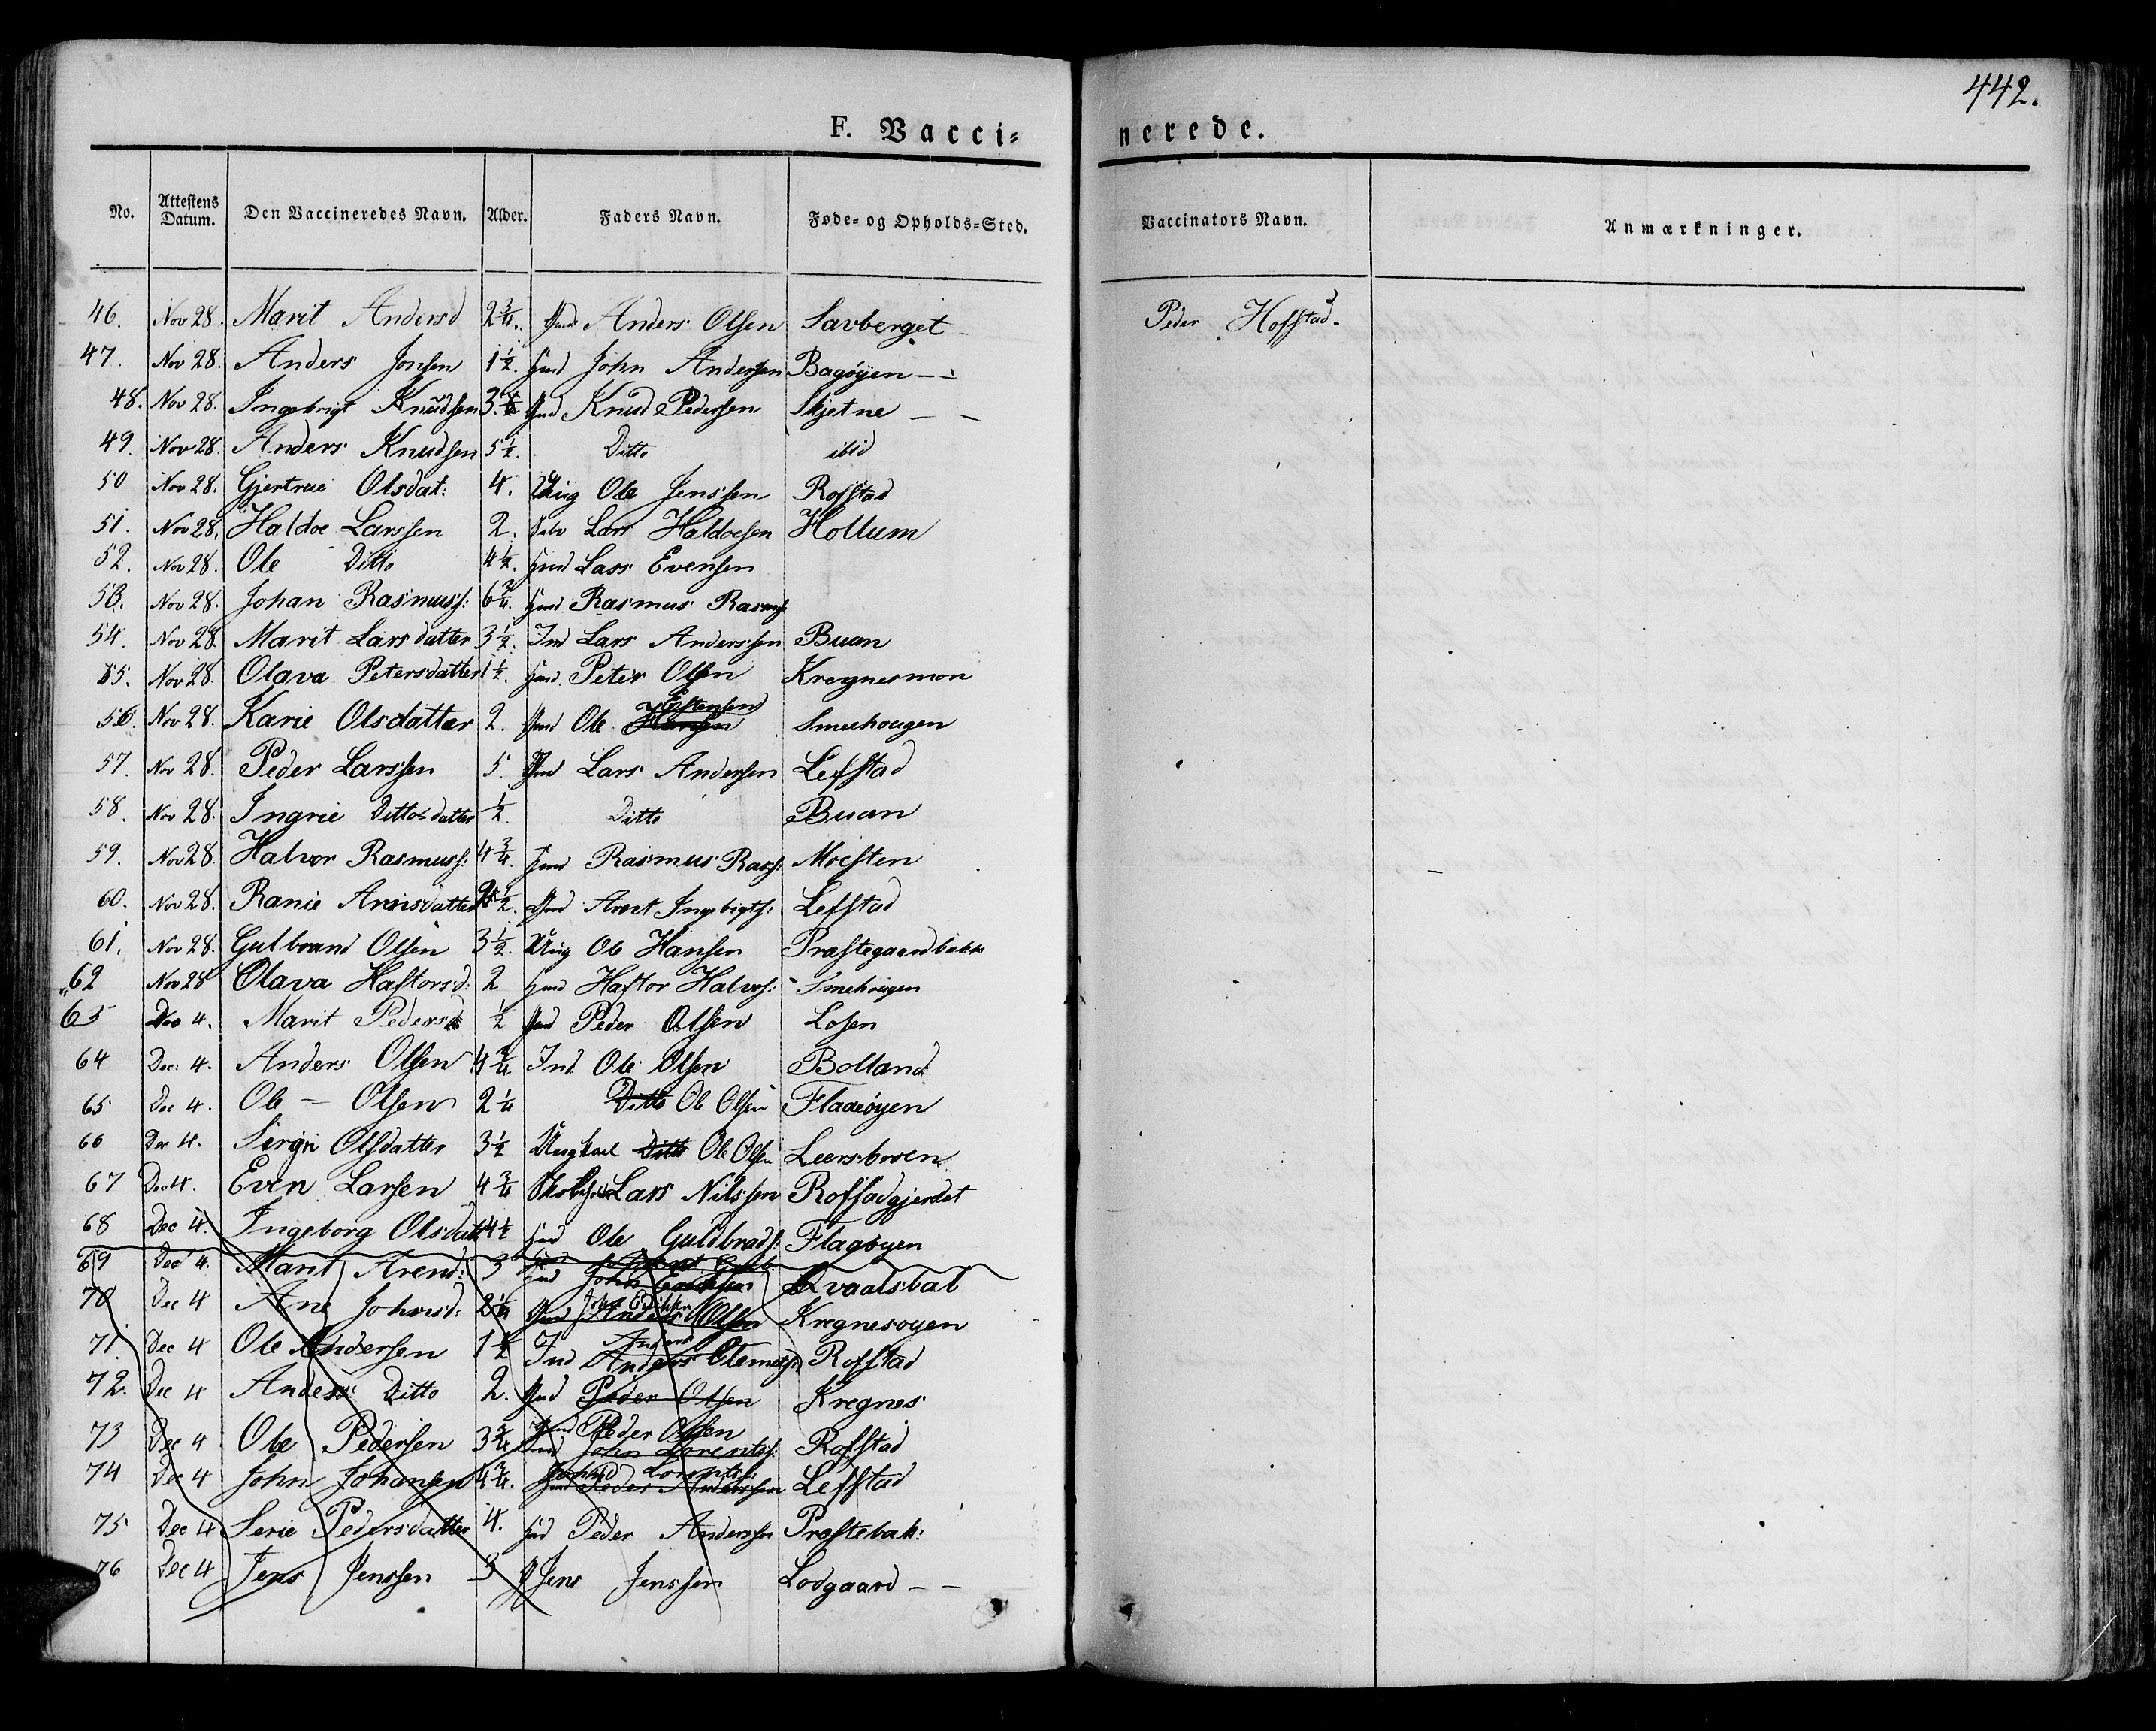 442.
F. Vacci= nerede.
No. Attestens Datum. Den Vaccineredes Navn. Alder. Faders Navn. Føde= og Opholds=Sted. Vaccinators Navn. Anmærkninger.
46. Nov 28. Marit Andersd 2 3/4. Anders Olsen Savberget Peder Hofstad.
47. Nov 28. Anders Jonsen 1 1/2. Huusd John Andersen Bagøyen — -
48. Nov 28. Ingebrigt Knudsen 3. Knud Pedersen Skjetne — —
49. Nov 28. Anders Knudsen 5 1/2. Ditto ibid
50 Nov 28. Gjertrue Olsdat: 4. Ung Ole Jenssen Rofstad
51. Nov 28. Haldoe Larssen 2. Lars Haldoesen Hollum
52. Nov 28. Ole Ditto 4 1/2. Lars Evensen
53. Nov 28. Johan Rasmuss: 6 3/4. Rasmus Rasmus:
54. Nov 28. Marit Larsdatter 3 1/2. Ind Lars Anderssen Buan
55. Nov 28. Olava Petersdatter 1 1/2. Peter Olsen Kregnesmon
56. Nov 28. Karie Olsdatter 2. Ole Estensen Smeehougen
57. Nov 28. Peder Larssen 5. Lars Andersen Lefstad
58. Nov 28. Ingrie Dittosdatter 1/2. Ditto Buan
59. Nov 28. Halvor Rasmuss: 4 3/4. Rasmus Rass: Moesten
60. Nov 28. Ranie Arnsdatter 1/2. Arnt Ingebigts: Lefstad
61. Nov 28. Gulbrand Olsen 3 1/2. Ung Ole Hansen Præstegaardbakk
62 Nov 28 Olava Haftorsd: 2 Haftor Halvors: Smehougen
63 Dec 4. Marit Pedersd 1/2 Peder Olsen Losen
64 Dec: 4. Anders Olsen 4 3/4 Ind Ole Olsen Bolland
65 Dec 4. Ole — Olsen 2 1/4 Ditto Ole Olsen Fladeøyen
66 Dec 4. Sirgri Olsdatter 3 1/2 Ungkarl Ditto Ole Olsen Leersbroen
67 Dec 4. Even Larsen 4 3/4 Lars Nilssen Rofstadgjerdet
68 Dec 4. Ingeborg Olsdatt 4 1/2 Ole Guldbrads: Flagøyen
69 Dec 4. Marit Arend: 3 John Erichsen Qvaalsbal
70 Dec 4 Ane Johnsd: 2 1/4 John Erichsen Anders Olsen Kregnesøyen
71 Dec 4 Ole Andersen 1 1/2 Ind Anders Anders Clemets: Rofstad
72. Dec 4 Anders Ditto 2. Peder Olsen Kregnes
73 Dec 4 Ole Pedersen 3 3/4 Peder Olsen John Lorentss: Rofstad
74 Dec 4 John Johansen 4 3/4. John Lorents: Peder Anderssen Lefstad
75 Dec 4 Serie Pedersdatter 4. Peder Anderssen Præstebak:
76 Dec 4 Jens Jenssen 3 Jens Jenssen Lodgaard — —